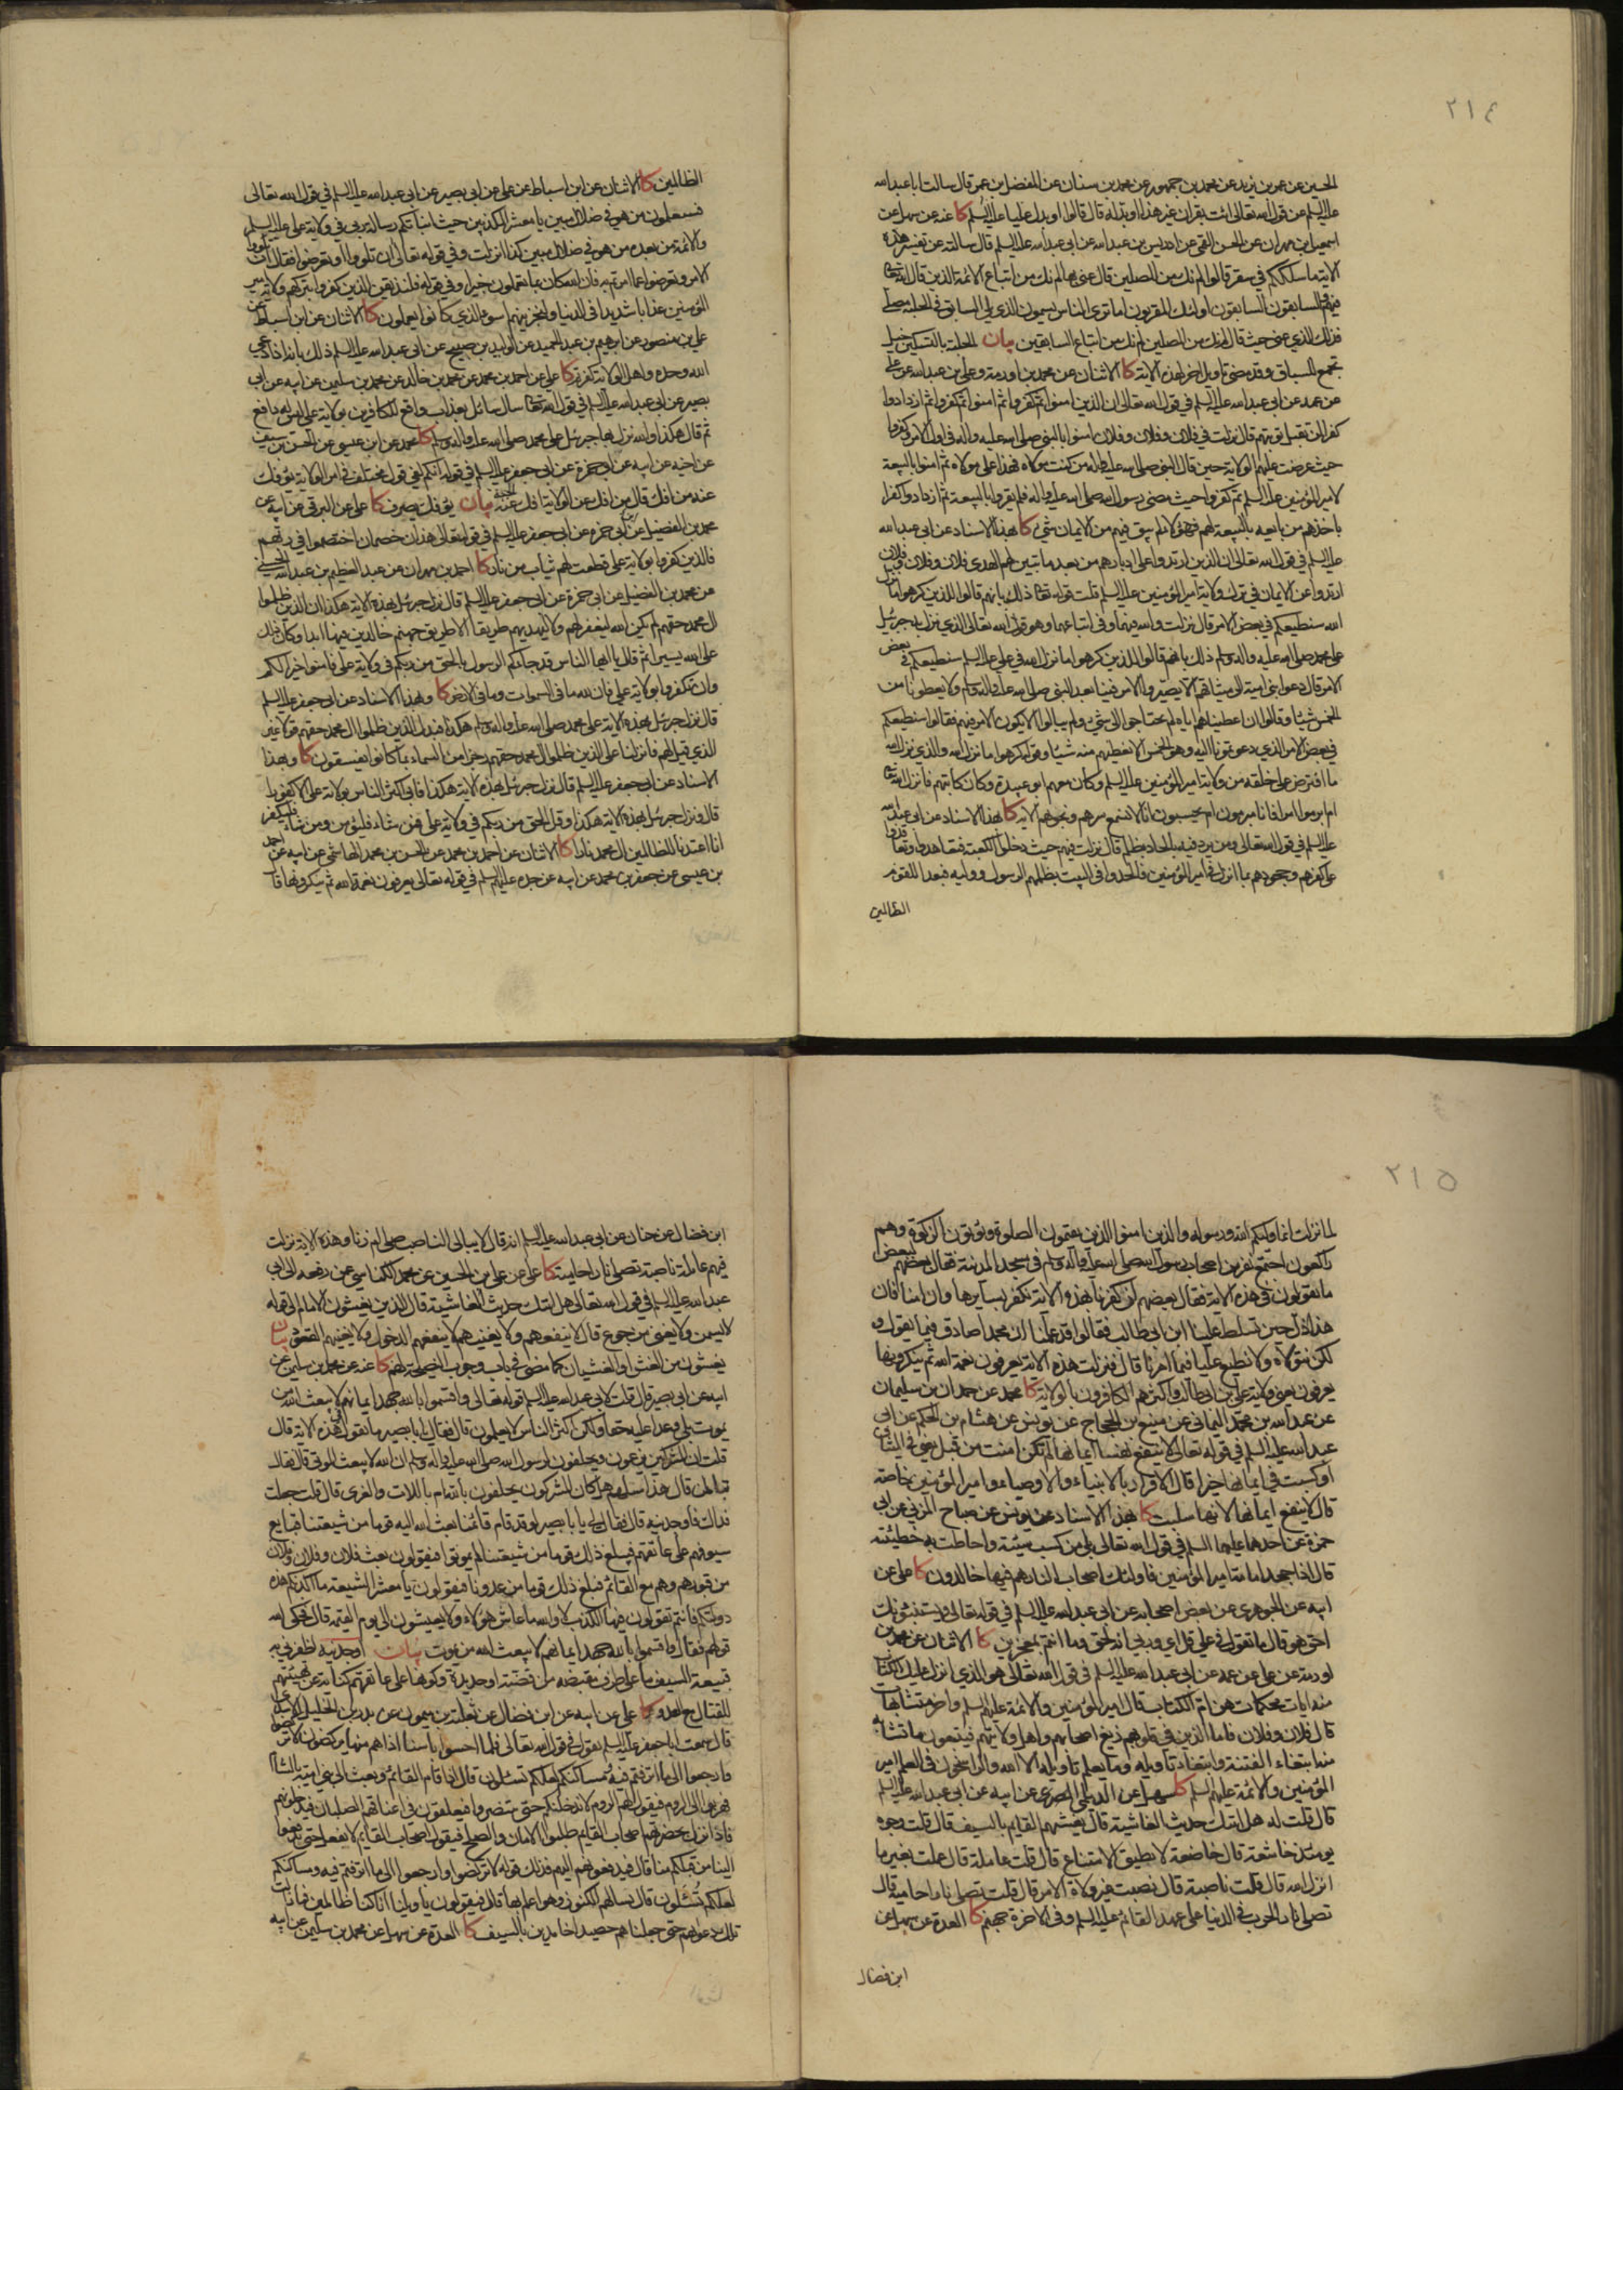 ٢١٤
الحسين عن عمر بن يزيد عن محمد بن جمهور عن محمد بن سنان عن المفضل بن عمر قال سالت ابا عبد الله
عليه السلم عن قول الله تعالى ائت بقران غير هذا او بدله قال قالوا او بدل عليا عليه السلم كا عنه عن سهل عن
اسمعيل بن مهران عن الحسن القمي عن ادريس بن عبد الله عن ابي عبد الله عليه السلم قال سالته عن تفسير هذه
الاية ما سلككم في سقر قالوا لم نك من المصلين قال عنى بها لم نك من اتباع الائمة الذين قال الله تعالى
فيهم والسابقون السابقون اولئك المقربون اما ترى الناس يسمون الذي يلي السابق في الحلبة مصلي
فذلك الذي عنى حيث قال لم نك من المصلين لم نك من اتباع السابقين بيان الحلبة بالتسكين خيل
تجمع للسباق وقد مضى تاويل اخر لهذه الاية كا الاثنان عن محمد بن اورمة وعلي بن عبد الله عن علي
عن عمه عن ابي عبد الله عليه السلم في قول الله تعالى ان الذين امنوا ثم كفروا ثم امنوا ثم كفروا ثم ازدادوا
كفرا لن تقبل توبتهم قال نزلت في فلان وفلان وفلان امنوا بالنبي صلى الله عليه واله في اول الامر وكفروا
حيث عرضت عليهم الولاية حين قال النبي صلى الله عليه واله من كنت مولاه فهذا علي مولاه ثم امنوا بالبيعة
لامير المؤمنين عليه السلم ثم كفروا حيث مضى رسول الله صلى الله عليه واله فلم يقروا بالبيعة ثم ازدادوا كفرا
باخذهم من بايعه بالبيعة لهم فهؤلاء لم يبق فيهم من الايمان شيء كا بهذا الاسناد عن ابي عبد الله
عليه السلم في قول الله تعالى ان الذين ارتدوا على ادبارهم من بعد ما تبين لهم الهدى فلان وفلان وفلان
ارتدوا عن الايمان في ترك ولاية امير المؤمنين عليه السلم قلت قوله تعالى ذلك بانهم قالوا للذين كرهوا ما نزل
الله سنطيعكم في بعض الامر قال نزلت والله فيهما وفي اتباعهما وهو قول الله تعالى الذي نزل به جبرئيل
على محمد صلى الله عليه واله وسلم ذلك بانهم قالوا للذين كرهوا ما نزل الله في علي عليه السلم سنطيعكم في بعض
الامر قال دعوا بني امية الى ميثاقهم الا يصيروا الامر فينا بعد النبي صلى الله عليه واله وسلم ولا يعطونا من
الخمس شيئا وقالوا ان اعطيناهم اياه لم يحتاجوا الى شيء ولم يبالوا الا يكون الامر فيهم فقالوا سنطيعكم
في بعض الامر الذي دعوتمونا اليه وهو الخمس الا نعطيهم منه شيئا وقوله كرهوا ما نزل الله والذي نزل الله
ما افترض على خلقه من ولاية امير المؤمنين عليه السلم وكان معهم ابو عبيدة وكان كاتبهم فانزل الله تعالى
ام ابرموا امرا فانا مبرمون ام يحسبون انا لا نسمع سرهم ونجويهم الاية كا بهذا الاسناد عن ابي عبد الله
عليه السلم في قول الله تعالى ومن يرد فيه بالحاد بظلم قال نزلت فيهم حيث دخلوا الكعبة فتعاهدوا وتعاقدوا
على كفرهم وجحودهم بما انزل في امير المؤمنين فالحدوا في البيت بظلمهم الرسول ووليه فبعدا للقوم
الظالمين
الظالمين كا الاثنان عن ابن اسباط عن علي عن ابي بصير عن ابي عبد الله عليه السلم في قول الله تعالى
فستعلمون من هو في ضلال مبين يا معشر المكذبين حيث انبأتكم رسالة ربي في ولاية علي عليه السلم
والائمة من بعده من هو في ضلال مبين كذا انزلت وفي قوله تعالى ان تلووا او تعرضوا فقال ان تلووا
الامر وتعرضوا عما امرتم به فان الله كان بما تعملون خبيرا وفي قوله فلنذيقن الذين كفروا بتركهم ولاية امير
المؤمنين عذابا شديدا في الدنيا ولنجزينهم اسوء الذي كانوا يعملون كا الاثنان عن ابن اسباط عن
علي بن منصور عن ابرهيم بن عبد الحميد عن الوليد بن صبيح عن ابي عبد الله عليه السلم ذلك بانه اذا دعي
الله وحده واهل الولاية كفرتم كا علي عن احمد بن محمد عن محمد بن خالد عن محمد بن سليمن عن ابيه عن ابي
بصير عن ابي عبد الله عليه السلم في قول الله تعالى سال سائل بعذاب واقع للكافرين بولاية علي ليس له دافع
ثم قال هكذا والله نزل بها جبرئيل على محمد صلى الله عليه واله وسلم كا محمد عن ابن عيسى عن الحسن بن سيف
عن اخيه عن ابيه عن ابي حمزة عن ابي جعفر عليه السلم في قوله انكم لفي قول مختلف في امر الولاية يؤفك
عنه من افك قال من افك عن الولاية افك عن الجنة بيان يؤفك يصرف كا علي عن البرقي عن ابيه عن
محمد بن الفضيل عن ابي حمزة عن ابي جعفر عليه السلم في قوله تعالى هذان خصمان اختصموا في ربهم
فالذين كفروا بولاية علي قطعت لهم ثياب من نار كا احمد بن مهران عن عبد العظيم بن عبد الله الحسني
عن محمد بن الفضيل عن ابي حمزة عن ابي جعفر عليه السلم قال نزل جبرئيل بهذه الاية هكذا ان الذين ظلموا
ال محمد حقهم لم يكن الله ليغفر لهم ولا ليهديهم طريقا الا طريق جهنم خالدين فيها ابدا وكان ذلك
على الله يسيرا ثم قال يا ايها الناس قد جاءكم الرسول بالحق من ربكم في ولاية علي فامنوا خيرا لكم
وان تكفروا بولاية علي فان لله ما في السموات وما في الارض كا وبهذا الاسناد عن ابي جعفر عليه السلم
قال نزل جبرئيل بهذه الاية على محمد صلى الله عليه واله وسلم هكذا فبدل الذين ظلموا ال محمد حقهم قولا غير
الذي قيل لهم فانزلنا على الذين ظلموا ال محمد حقهم رجزا من السماء بما كانوا يفسقون كا وبهذا
الاسناد عن ابي جعفر عليه السلم قال نزل جبرئيل بهذه الاية هكذا فابى اكثر الناس بولاية علي الا كفورا
قال ونزل جبرئيل بهذه الاية هكذا وقل الحق من ربكم في ولاية علي فمن شاء فليؤمن ومن شاء فليكفر
انا اعتدنا للظالمين ال محمد نارا كا الاثنان عن احمد بن محمد عن الحسن بن محمد الهاشمي عن ابيه عن احمد
بن عيسى عن جعفر بن محمد عن ابيه عن جده عليهم السلم في قوله تعالى يعرفون نعمة الله ثم ينكرونها قال
٢١٥
لما نزلت انما وليكم الله ورسوله والذين امنوا الذين يقيمون الصلوة ويؤتون الزكوة وهم
راكعون اجتمع نفر من اصحاب رسول الله صلى الله عليه واله وسلم في مسجد المدينة فقال بعضهم لبعض
ما تقولون في هذه الاية فقال بعضهم ان كفرنا بهذه الاية نكفر بسايرها وان امنا فان
هذا ذل حين تسلط علينا ابن ابي طالب فقالوا قد علمنا ان محمدا صادق فيما يقول و
لكن نتولاه ولا نطيع عليا فيما امرنا قال فنزلت هذه الاية يعرفون نعمة الله ثم ينكرونها
يعرفون يعني ولاية علي بن ابي طالب واكثرهم الكافرون بالولاية كا محمد عن حمدان بن سليمان
عن عبد الله بن محمد اليماني عن منيع بن الحجاج عن يونس عن هشام بن الحكم عن ابي
عبد الله عليه السلم في قوله تعالى لا ينفع نفسا ايمانها لم تكن امنت من قبل يعني في الميثاق
او كسبت في ايمانها خيرا قال الاقرار بالانبياء والاوصياء وامير المؤمنين خاصة
قال لا ينفع ايمانها لانها سلبت كا بهذا الاسناد عن يونس عن صباح المزني عن ابي
حمزة عن احدهما عليهما السلم في قول الله تعالى بلى من كسب سيئة واحاطت به خطيئته
قال اذا جحد امامة امير المؤمنين فاولئك اصحاب النار هم فيها خالدون كا علي عن
ابيه عن الجوهري عن بعض اصحابه عن ابي عبد الله عليه السلم في قوله تعالى ويستنبئونك
احق هو قال ما تقول في علي قل اي وربي انه لحق وما انتم بمعجزين كا الاثنان عن محمد بن
اورمة عن علي عن عمه عن ابي عبد الله عليه السلم في قول الله تعالى هو الذي انزل عليك الكتاب
منه ايات محكمات هن ام الكتاب قال امير المؤمنين والائمة عليهم السلم واخر متشابهات
قال فلان وفلان فاما الذين في قلوبهم زيغ اصحابهم واهل ولايتهم فيتبعون ما تشابه
منه ابتغاء الفتنة وابتغاء تاويله وما يعلم تاويله الا الله والراسخون في العلم امير
المؤمنين والائمة عليهم السلم كا سهل عن الديلمي المصري عن ابيه عن ابي عبد الله عليه السلم
قال قلت له هل اتيك حديث الغاشية قال يغشيهم القايم بالسيف قال قلت وجوه
يومئذ خاشعة قال خاضعة لا تطيق الامتناع قال قلت عاملة قال عملت بغير ما
انزل الله قال قلت ناصبة قال نصبت غير ولاة الامر قال قلت تصلى نارا حامية قال
تصلى نار الحرب في الدنيا على عهد القائم عليه السلم وفي الاخرة جهنم كا العدة عن سهل عن
ابن فضال
ابن فضال عن حنان عن ابي عبد الله عليه السلم انه قال لا يبالي الناصب صلى ام زنا وهذه الاية نزلت
فيهم عاملة ناصبة تصلى نارا حامية كا علي عن علي بن الحسين عن محمد الكناسي عن رفعه الى ابي
عبد الله عليه السلم في قول الله تعالى هل اتيك حديث الغاشية قال الذين يغشون الامام الى قوله
لا يسمن ولا يغني من جوع قال لا ينفعهم ولا يغنيهم لا ينفعهم الدخول ولا يغنيهم القعود بيان
يغشون من الغش او الغشيان كما مضى في باب وجوب النصيحة لهم كا عنه عن محمد بن سليمن عن
ابيه عن ابي بصير قال قلت لابي عبد الله عليه السلم قوله تعالى واقسموا بالله جهد ايمانهم لا يبعث الله من
يموت بلى وعدا عليه حقا ولكن اكثر الناس لا يعلمون قال فقال لي يا با بصير ما تقول في هذه الاية قال
قلت ان المشركين يزعمون ويحلفون لرسول الله صلى الله عليه واله وسلم ان الله لا يبعث الموتى قال فقال
تبا لمن قال هذا سلهم هل كان المشركون يحلفون بالله ام باللات والعزى قال قلت جعلت
فداك فاوجدنيه قال فقال لي يا با بصير لو قد قام قائمنا بعث الله اليه قوما من شيعتنا قباع
سيوفهم على عاتقهم فيبلغ ذلك قوما من شيعتنا لم يموتوا فيقولون بعث فلان وفلان وفلان
من قبورهم وهم مع القائم فيبلغ ذلك قوما من عدونا فيقولون يا معشر الشيعة ما اكذبكم هذه
دولتكم فانتم تقولون فيها الكذب لا والله ما عاش هؤلاء ولا يعيشون الى يوم القيمة قال فحكى الله
قولهم فقال واقسموا بالله جهد ايمانهم لا يبعث الله من يموت بيان اوجدنيه اظفرني به
قبيعة السيف ما على طرف مقبضه من فضة او حديدة وكونها على عاتقهم كناية عن تهيئتهم
للقتال مع العدو كا علي عن ابيه عن ابن فضال عن ثعلبة بن ميمون عن بدر بن الخليل الاسدي
قال سمعت ابا جعفر عليه السلم يقول في قول الله تعالى فلما احسوا باسنا اذا هم منها يركضون لا تركضوا
وارجعوا الى ما اترفتم فيه ومساكنكم لعلكم تسئلون قال اذا قام القائم وبعث الى بني امية بالشام
فهربوا الى الروم فيقول لهم الروم لا ندخلنكم حتى تتنصروا فيعلقون في اعناقهم الصلبان فيدخلونهم
فاذا نزل بحضرتهم اصحاب القايم طلبوا الامان والصلح فيقول اصحاب القايم لا نفعل حتى تدفعوا
الينا من قبلكم منا قال فيدفعونهم اليهم فذلك قوله لا تركضوا وارجعوا الى ما اترفتم فيه ومساكنكم
لعلكم تسئلون قال يسالهم الكنوز وهو اعلم بها قال فيقولون يا ويلنا انا كنا ظالمين فما زالت
تلك دعويهم حتى جعلناهم حصيدا خامدين بالسيف كا العدة عن سهل عن محمد بن سليمن عن ابيه